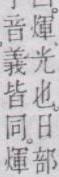 煇光也日部
音義皆同煇